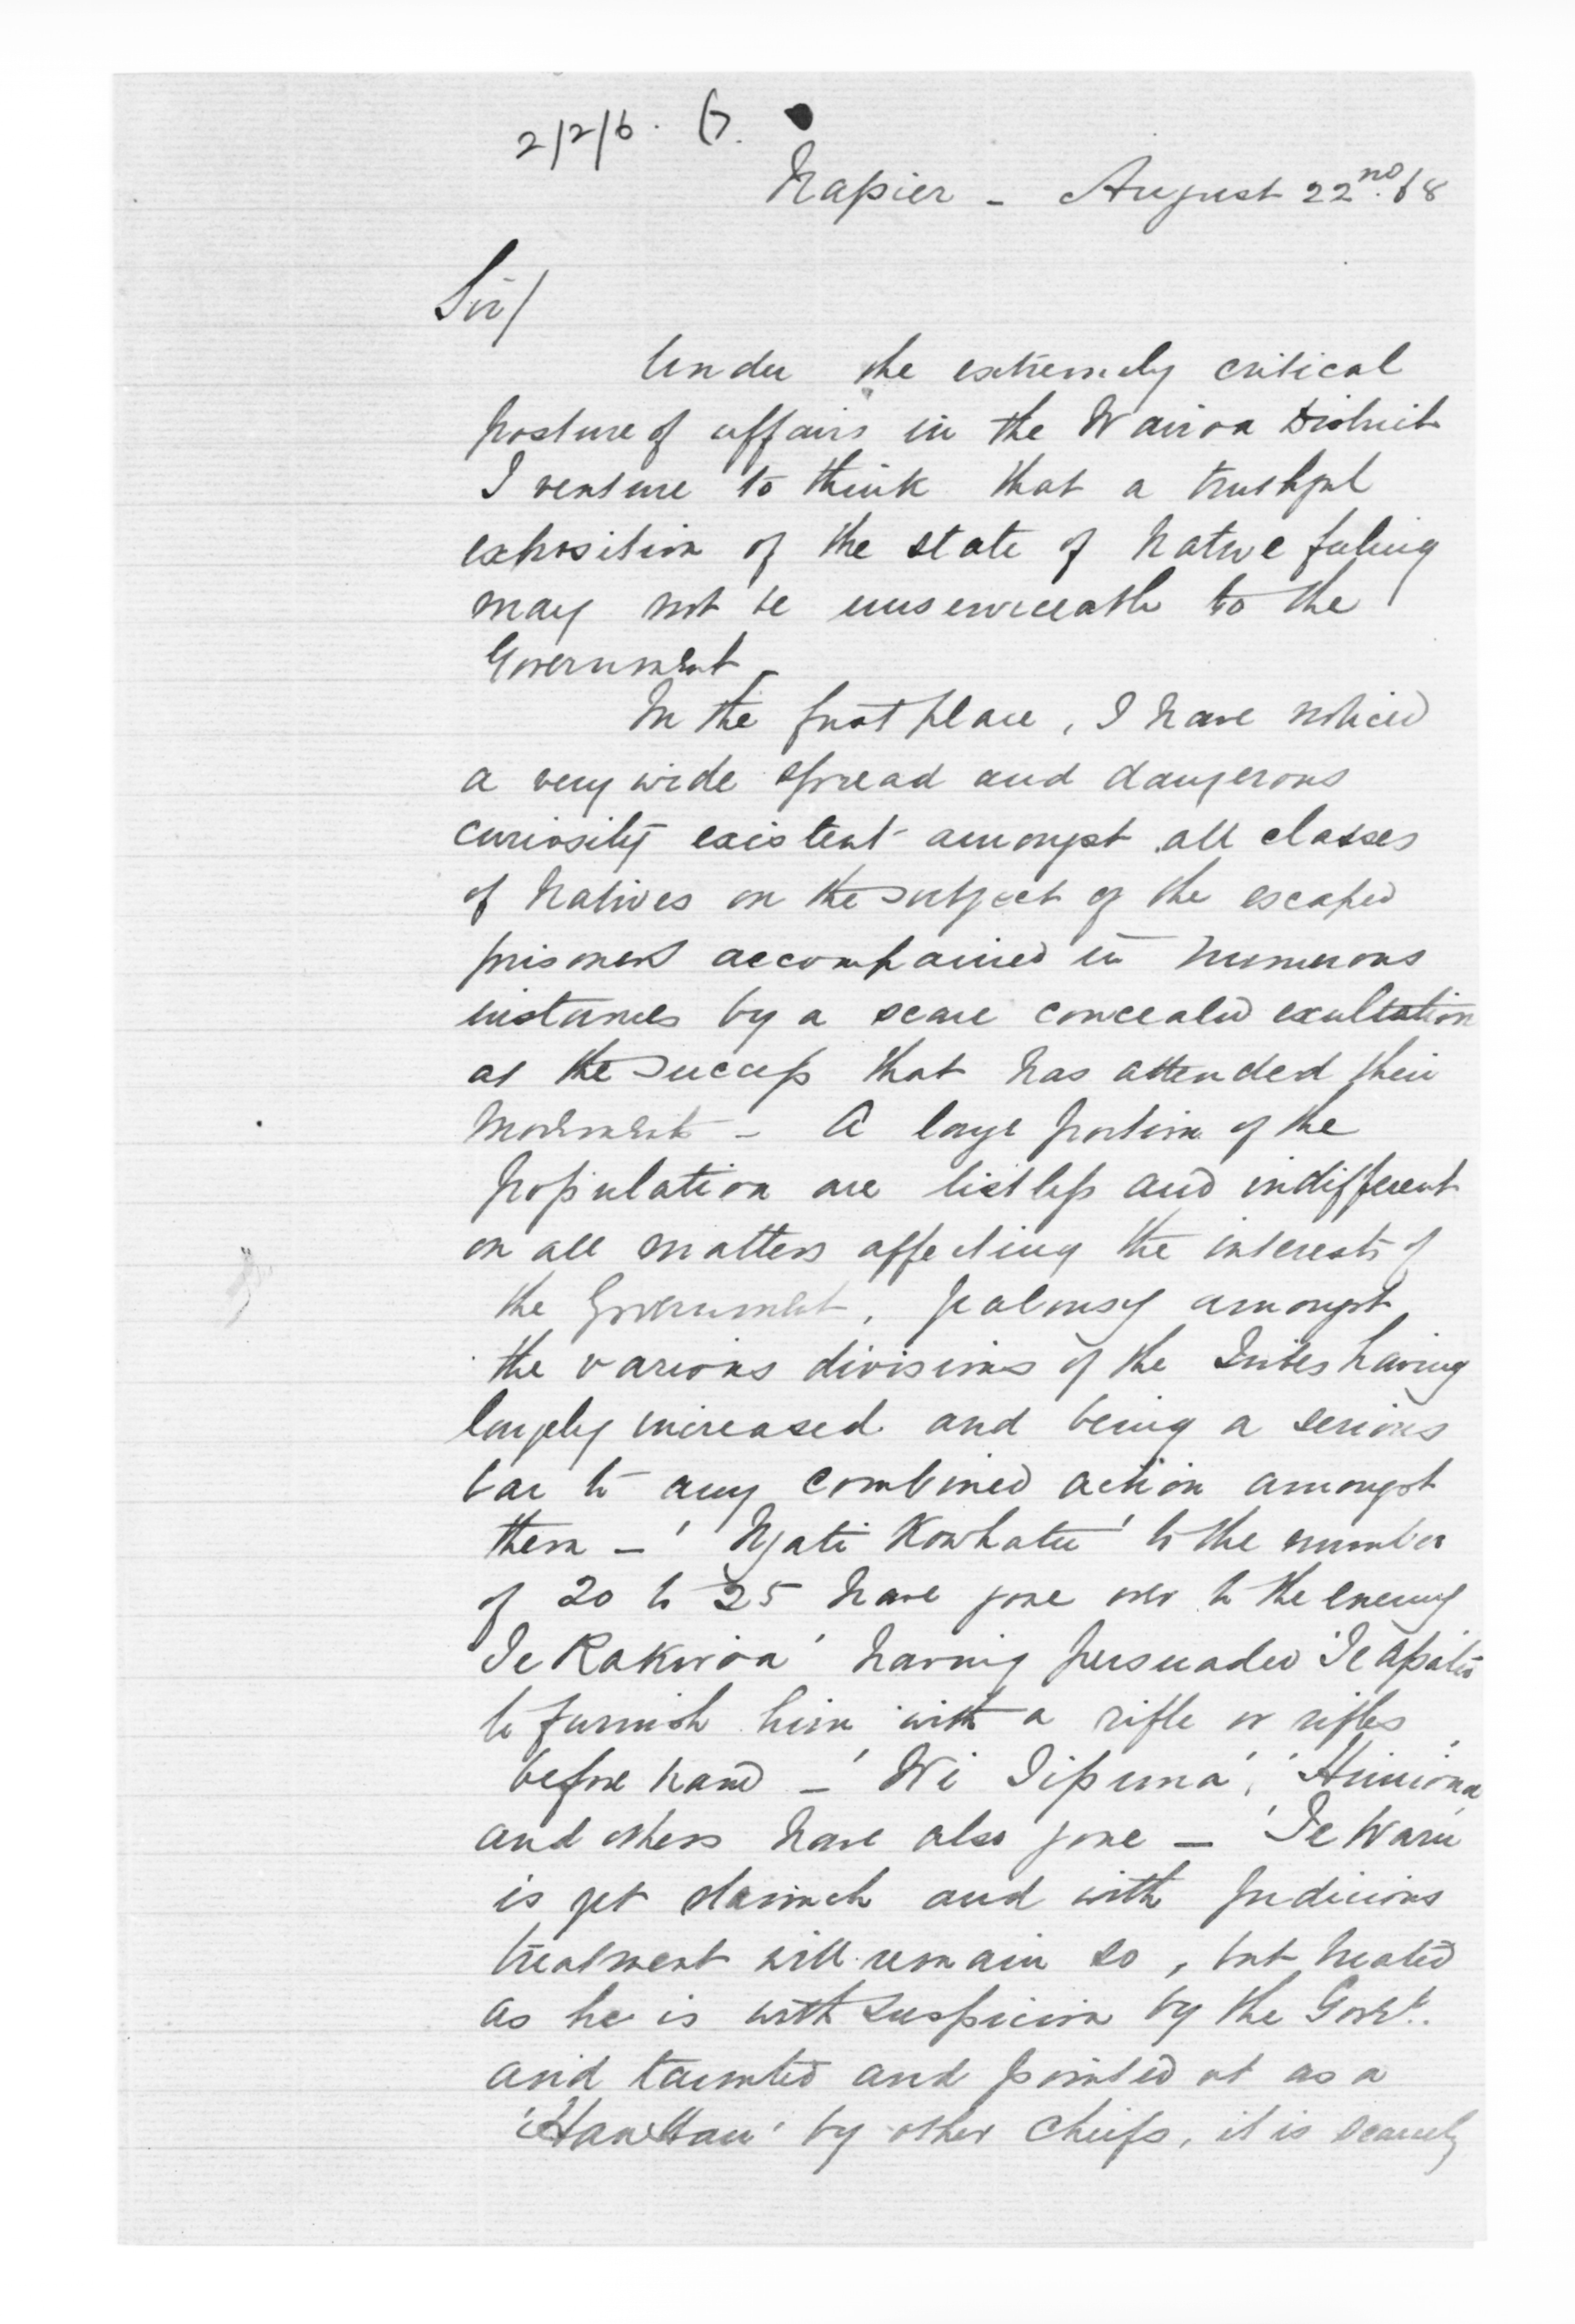 2/2/6.
Napier - August 22nd. 68
Sir/
Under the extremely critical
posture of affairs in the Wairoa District
I venture to think that a truthful
exposition of the state of Native feeling
may not be unserviceable to the
Government -
In the first place, I have noticed
a very wide spread and dangerous
curiosity existent amongst all classes
of Natives on the subject of the escaped
prisoners accompanied in numerous
instances by a scarce concealed exultation
at the success that has attended their
movements - A large portion of the
population are listless and indifferent
on all matters affecting the interests of
the Government, jealousy amongst
the various divisions of the Tribes having
largely increased and being a serious
bar to any combined action amongst
them - 'Ngati Kowhatu' to the number
of 20 to 25 have gone over to the enemy
Te Rakiroa' having persuaded 'Te Apatu
to furnish him with a rifle or rifles
before hand - 'Wi Tipuna', 'Himiona'
and others have also gone - 'Te Waru'
is yet staunch and with judicious
treatment will remain so, but treated
as he is with suspicion by the Govt.
and taunted and pointed at as a
'Hau Hau' by other Chiefs, it is scarcely